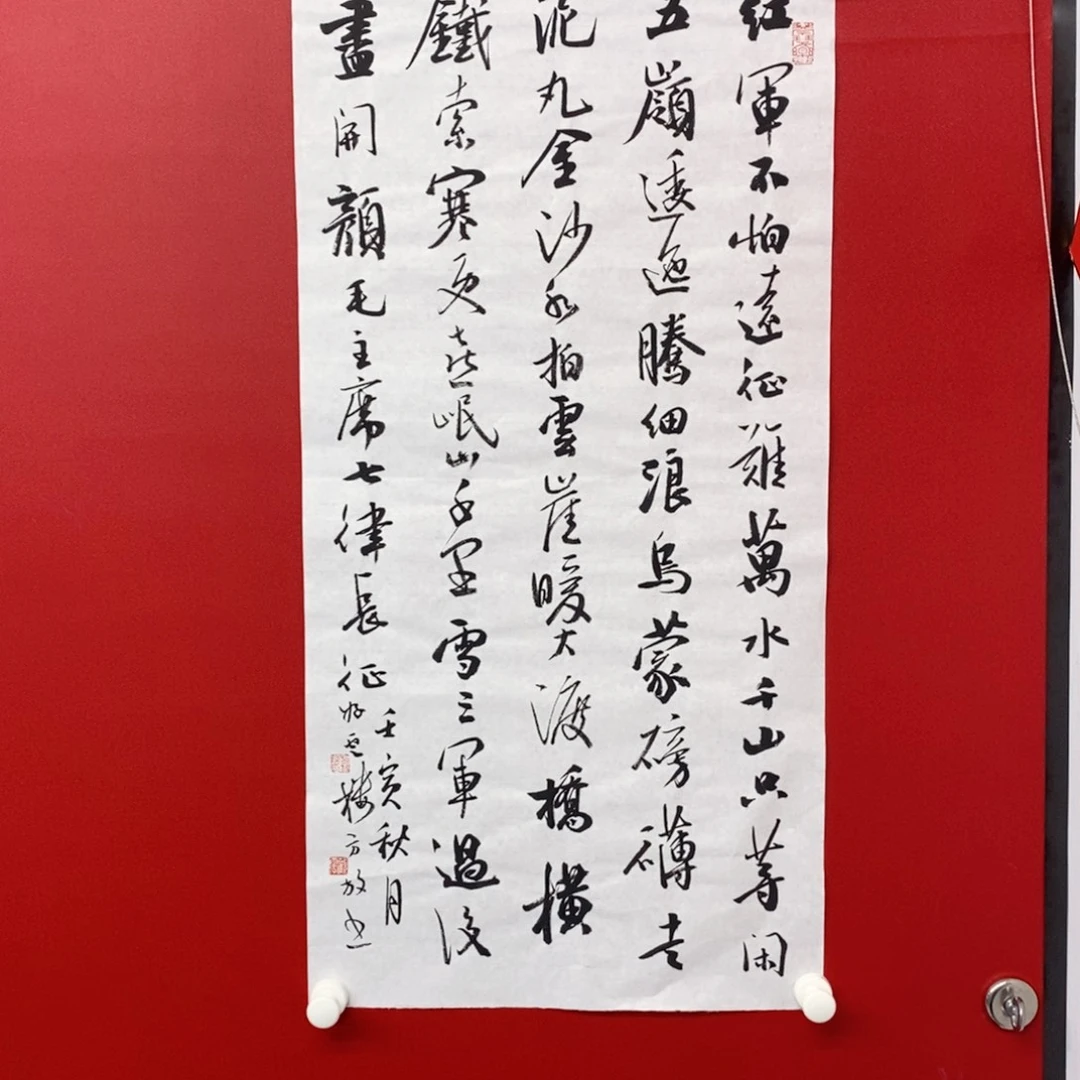 紅軍不怕遠征難萬水千山只等闲
五嶺逶迤騰細浪烏蒙磅礴走
泥丸金沙水拍雲崖暖大渡橋橫
鐵索寒更喜岷山千里雪三軍過後
盡開顏毛主席七律長征
壬寅秋月
樓方放書